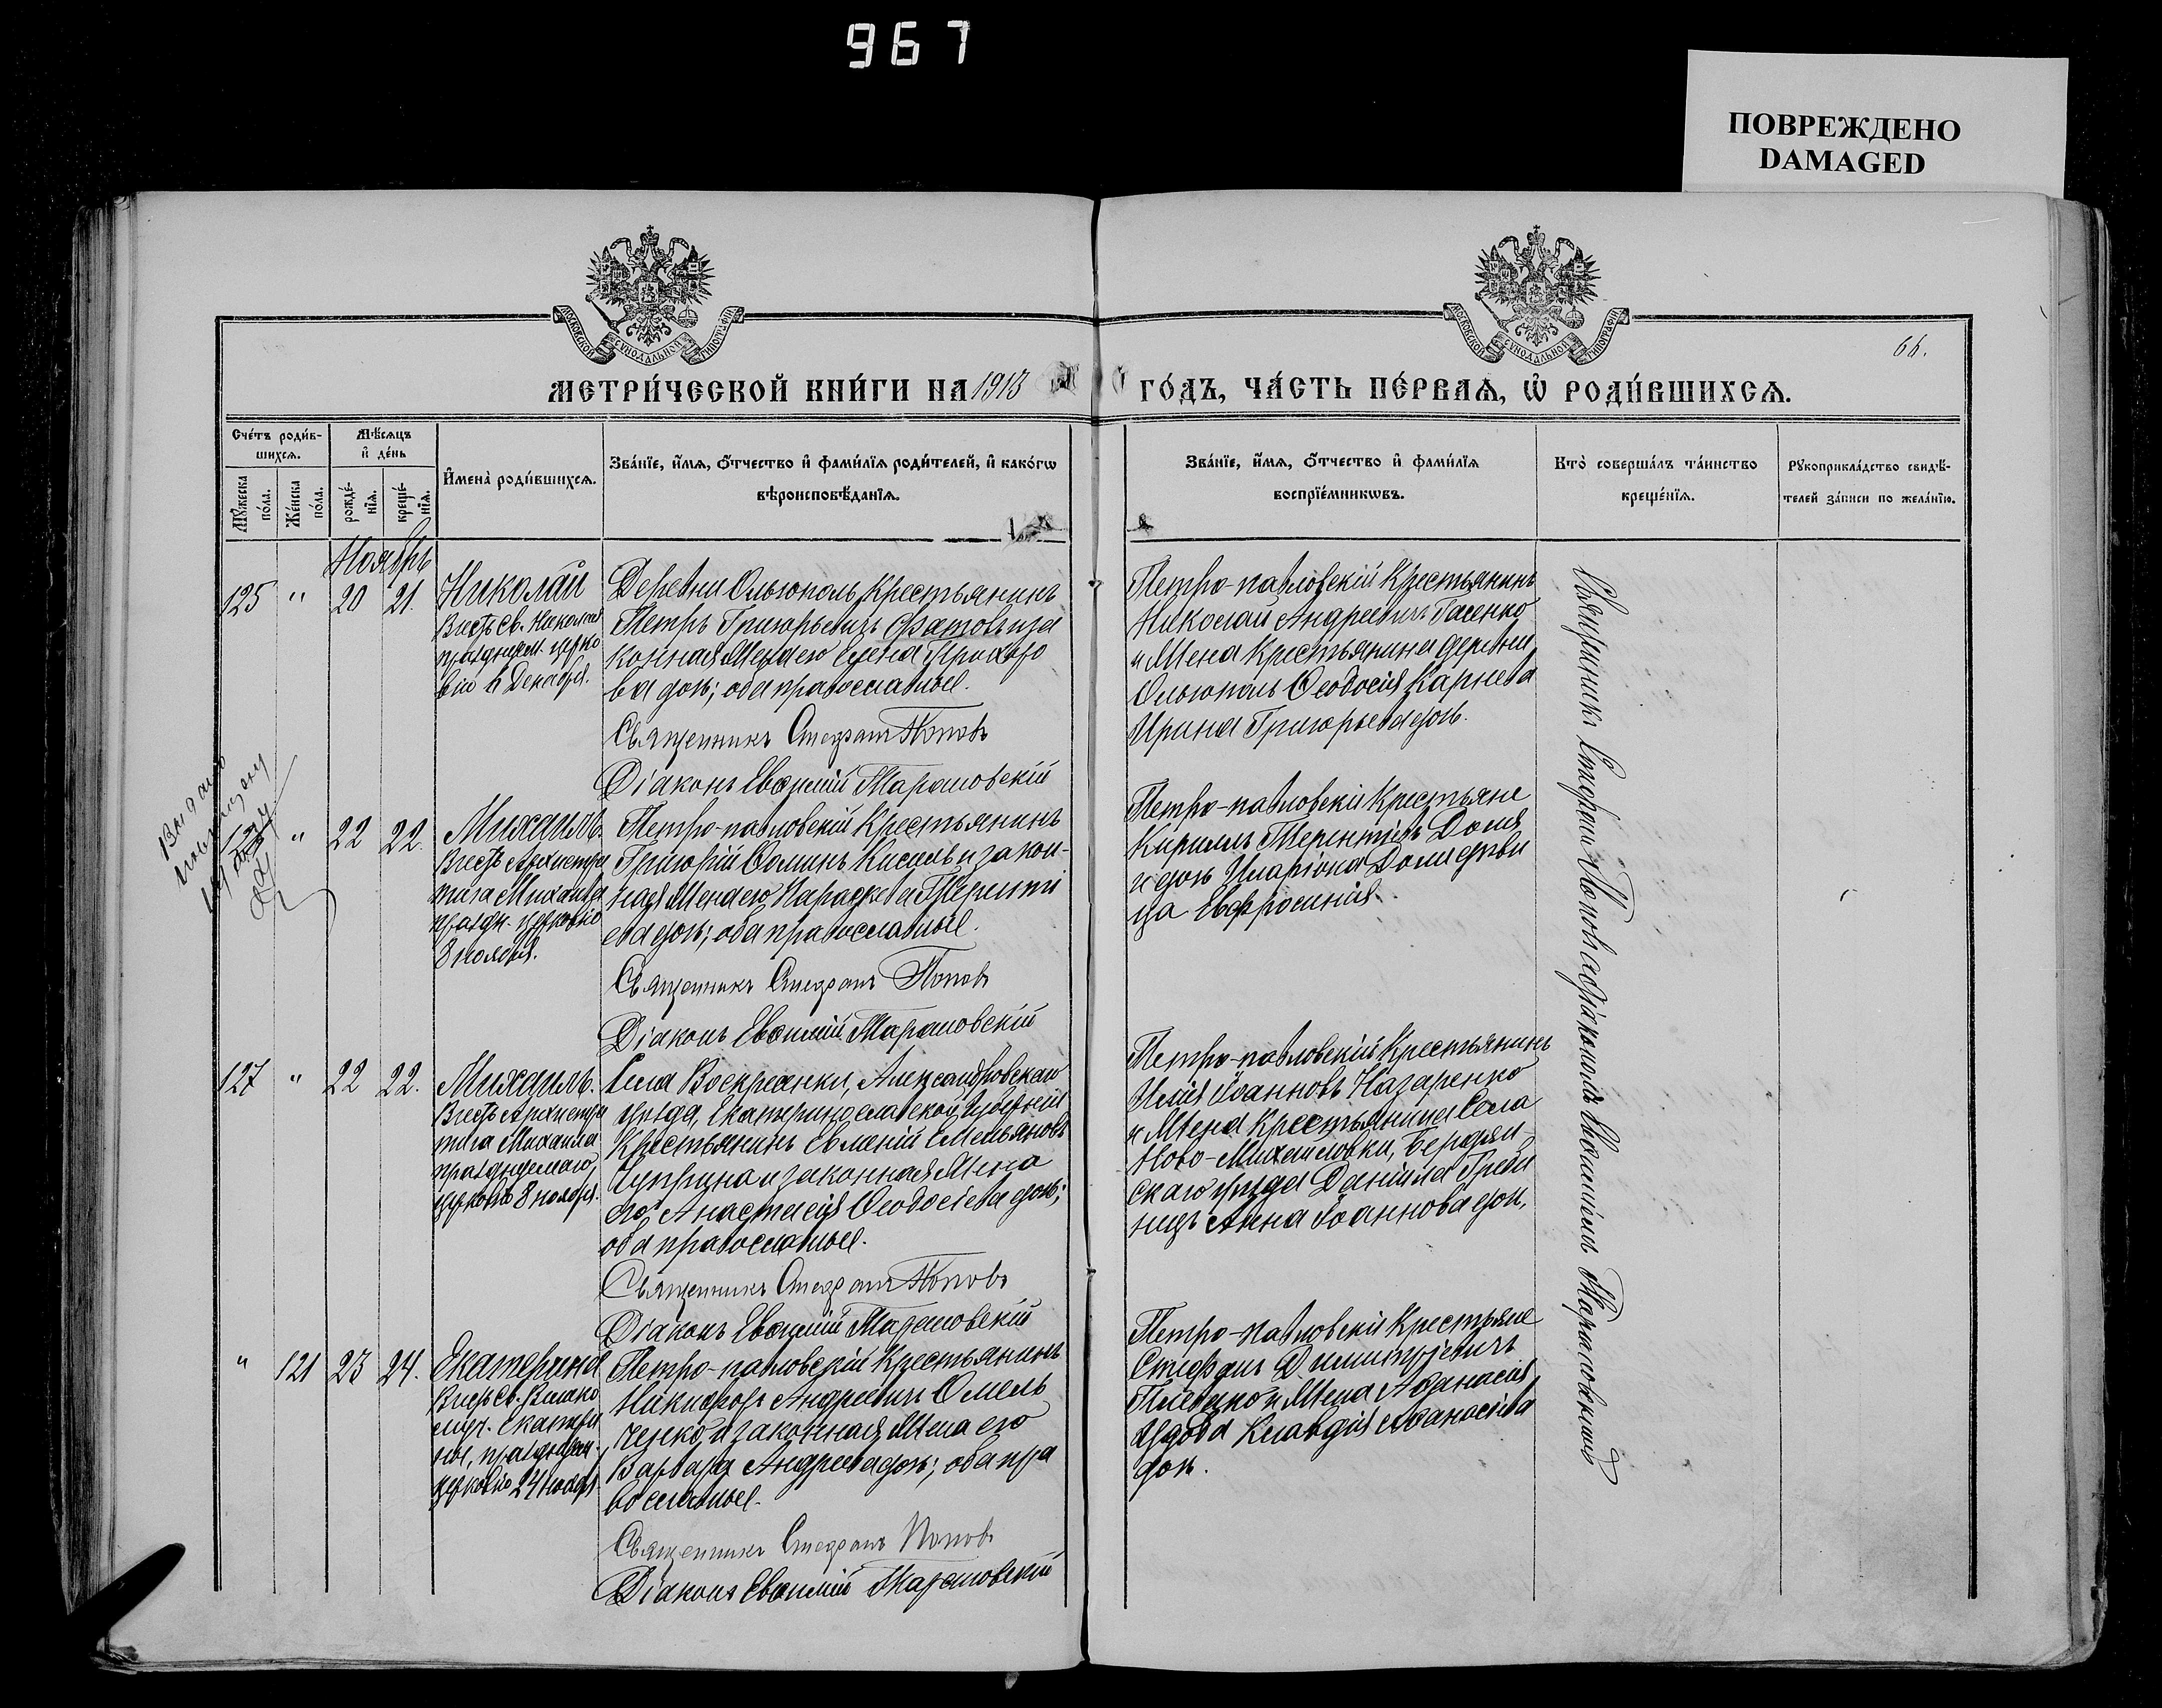 967
ПОВРЕЖДЕНО
DAMAGED
МОСКОВСКОЙ СѴНОДАЛЬНОЙ ТИПОГРАФІИ
МОСКОВСКОЙ СѴНОДАЛЬНОЙ ТИПОГРАФІИ
66.
МЕТРИ́ЧЕСКОЙ КНИ́ГИ НА 1913 ГО́ДЪ, ЧА́СТЬ ПЕ́РВАѦ, Ѡ҆ РОДИ́ВШИХСѦ.
Сче́тъ роди́в-
шихсѧ.
Мꙋ́жеска по́ла.
Же́нска по́ла.
Мѣ́сѧцъ
и҆ де́нь
рожде́-
нїѧ.
креще́-
нїѧ.
И҆мена̀ роди́вшихсѧ.
Зва́нїе, и҆́мѧ, ѻ҆́тчество и҆ фами́лїѧ роди́телей, и҆ како́гѡ
вѣроисповѣ́данїѧ.
Зва́нїе, и҆́мѧ, ѻ҆́тчество и҆ фами́лїѧ
воспрїе́мникѡвъ.
Кто̀ соверша́лъ та́инство
креще́нїѧ.
Рꙋкоприкла́дство свидѣ́-
телей за́писи по жела́нїю.
Ноябрь
125 " 20 21.
Николай
Въ честь Св. Николая
празднуем. церко
вію 6 Декабря.
Деревни Ольгополь крестьянинъ
Петръ Григорьевичъ Фатовъ и за
конная жена его Елена Прохоро
ва дочь; оба православные.
Священникъ Стефанъ Поповъ
Діаконъ Евѳимій Тарановскій
Петро-павловскій крестьянинъ
Николай Андреевичъ Гасенко
и жена крестьянина деревни
Ольгополь Ѳеодосія Карнева
Ирина Григорьева дочь.
Выдано
" 22 22.
Михаилъ.
Въ честь Архистра
тига Михаила
праздн. церковію
8 ноября.
Петро-павловскій крестьянинъ
Григорій Ѳоминъ Кисиль и закон-
ная жена его Параскева Теренті
ева дочь; оба православные.
Священникъ Стефанъ Поповъ
Діаконъ Евѳимій Тарановскій
Петро-павловскіе крестьяне
Кириллъ Терентіевъ Доля
и дочь Иларіона Доли дѣви
ца Евфросинія.
127 " 22 22.
Михаилъ.
Въ честь Архистра
тига Михаила
празднуемаго
церковію 8 ноября.
Села Воскресенки, Александровскаго
уѣзда, Екатеринославской губерніи
крестьянинъ Евменій Емельяновъ
Чуприна и законная жена
его Анастасія Ѳеодосіева дочь;
оба православные.
Священникъ Стефанъ Поповъ
Діаконъ Евѳимій Тарановскій
Петро-павловскій крестьянинъ
Илія Іоанновъ Назаренко
и жена крестьянина села
Ново-Михайловки, Бердян-
скаго уѣзда Даніила Греби
ницъ Анна Іоаннова доч.
" 121 23 24.
Екатерина
Въ честь Св. Велико
муч. Екатери
ны, празднуем.
церковію 24 ноября.
Петро-павловскій крестьянинъ
Никифоръ Андреевичъ Омель
ченко и законная жена его
Варвара Андреева дочь; оба пра
вославные.
Священникъ Стефанъ Поповъ
Діаконъ Евѳимій Тарановскій
Петро-павловскіе крестьяне
Стефанъ Димитріевичъ
и жена Аѳанасія
Клавдія Аѳанасіева
доч.
Священникъ Стефанъ Поповъ съ діакономъ Евѳиміемъ Тарановскимъ